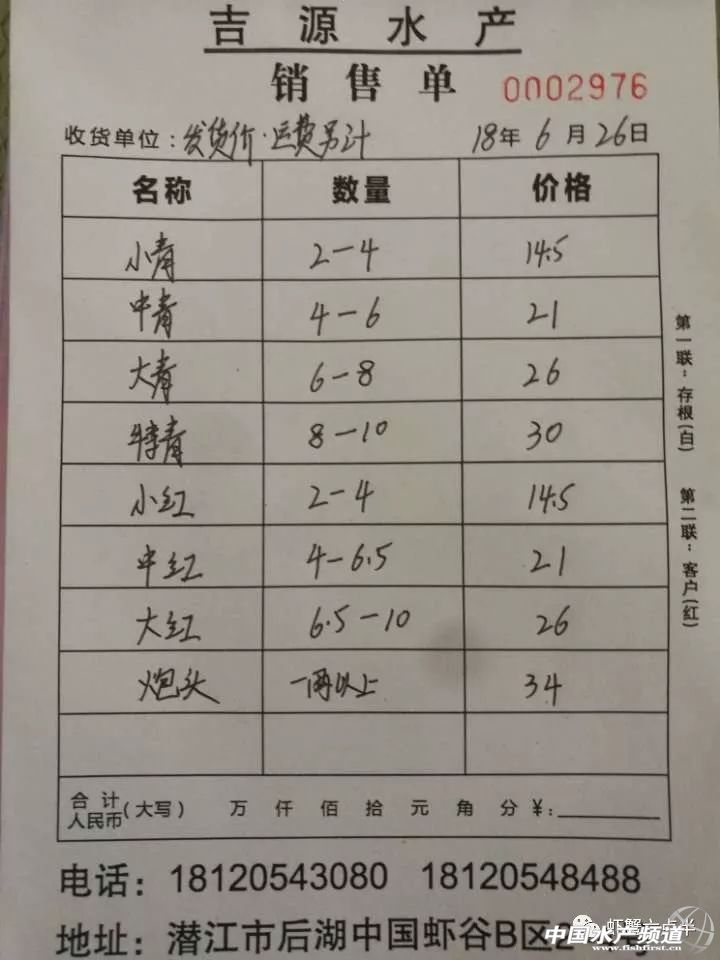 吉源水产
销售单 0002976
收货单位：发货价·运费另计 18年6月26日
名称 数量 价格
小青 2-4 14.5
中青 4-6 21
大青 6-8 26
特青 8-10 30
小红 2-4 14.5
中红 4-6.5 21
大红 6.5-10 26
炮头 一两以上 34
合计人民币(大写) 万 仟 佰 拾 元 角 分 ￥:
第一联：存根(白)
第二联：客户(红)
电话：18120543080 18120548488
地址：潜江市后湖中国虾谷B区
虾蟹六点半
中国水产频道
www.fishfirst.cn